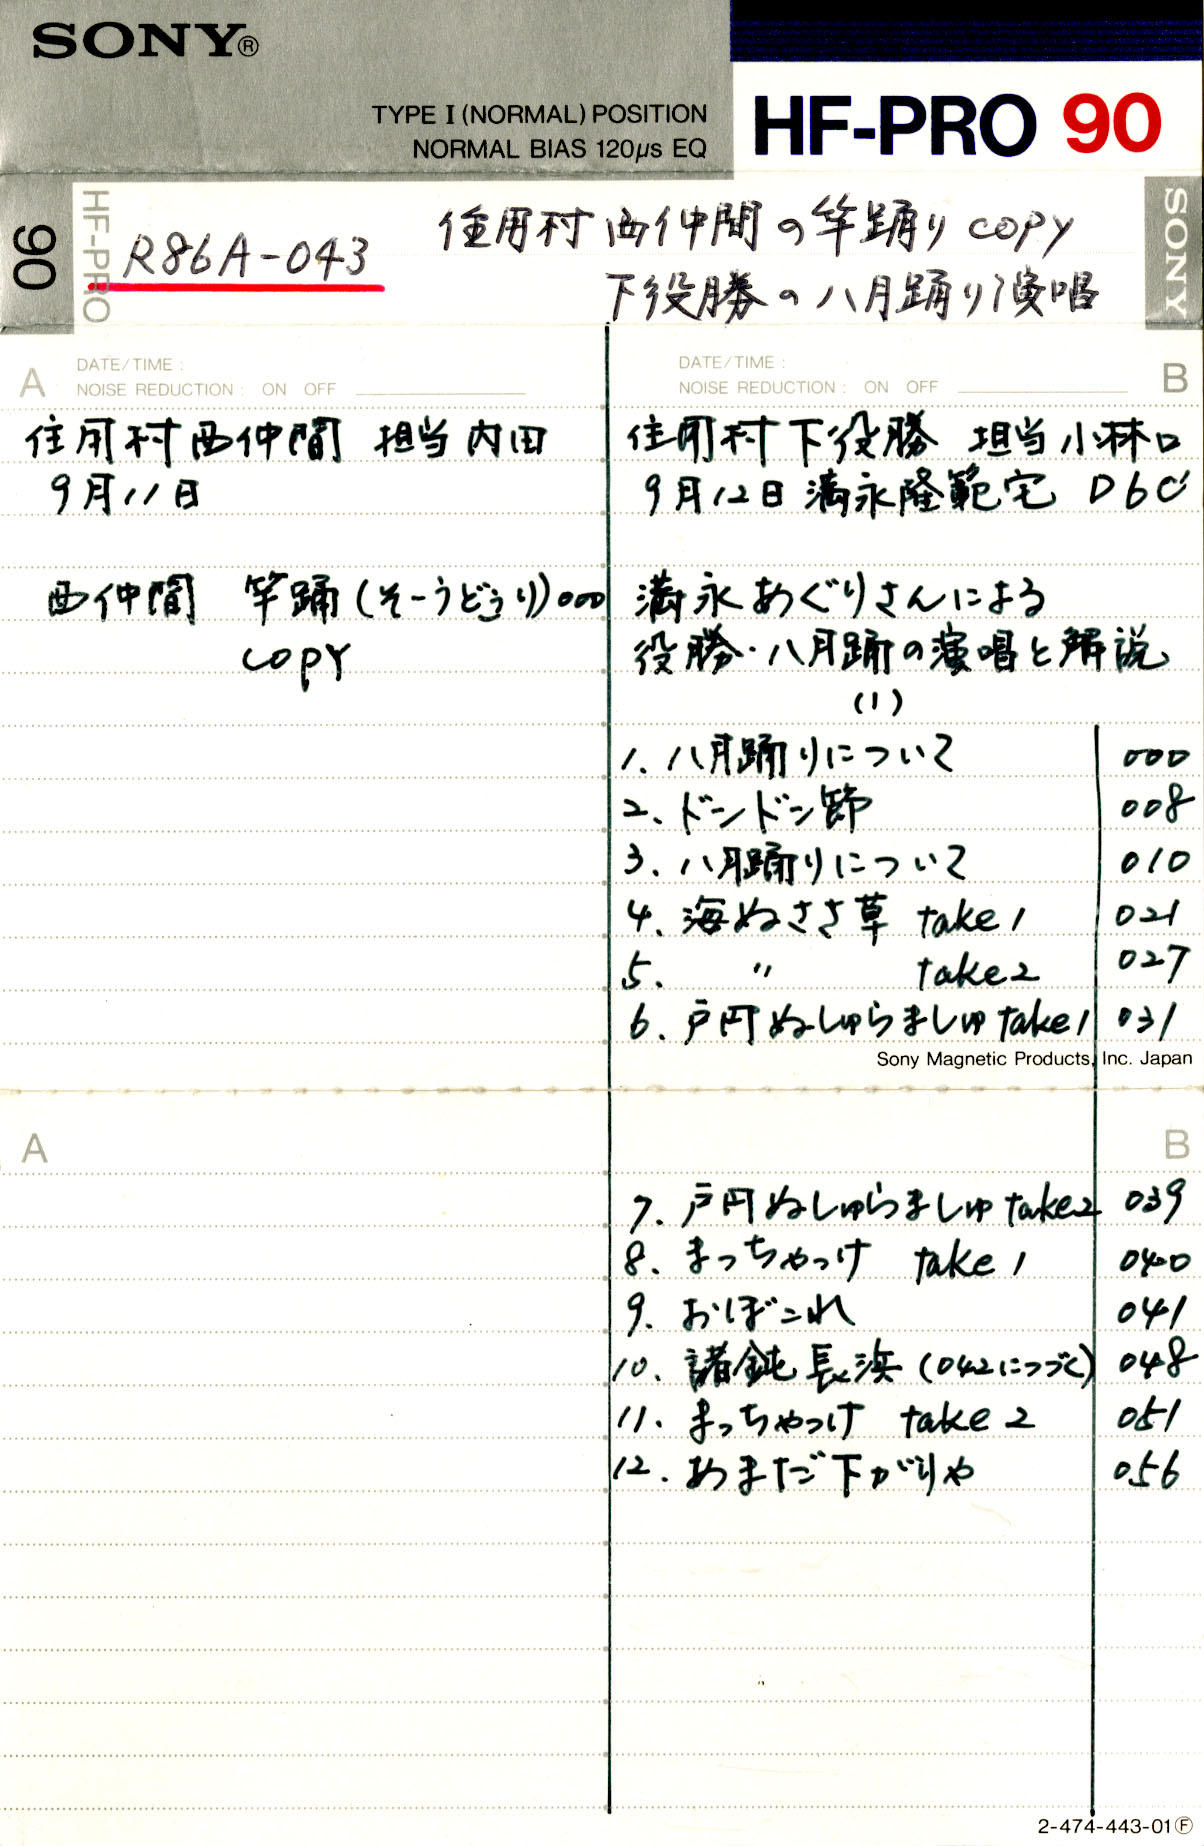 SONY®
TYPE I (NORMAL) POSITION
NORMAL BIAS 120µs EQ
HF-PRO 90
90
HF-PRO
R86A-043
住用村西仲間の竿踊り copy
下役勝の八月踊り演唱
SONY
A
DATE/TIME :
NOISE REDUCTION : ON OFF
住用村西仲間 担当内田
9月11日
西仲間 竿踊(そーうどぅり)000
copy
B
DATE/TIME :
NOISE REDUCTION : ON OFF
住用村下役勝 担当小林口
9月12日満永隆範宅 D6C
満永あぐりさんによる
役勝・八月踊の演唱と解説
(1)
1. 八月踊りについて 000
2. ドンドン節 008
3. 八月踊りについて 010
4. 海ぬささ草 take 1 021
5. 〃 take 2 027
6. 戸円ぬしゅらましゅ take 1 031
Sony Magnetic Products, Inc. Japan
A
B
7. 戸円ぬしゅらましゅ take 2 039
8. まっちゃっけ take 1 040
9. おぼこれ 041
10. 諸鈍長浜 (042につづく) 048
11. まっちゃっけ take 2 051
12. あまだ下がりや 056
2-474-443-01Ⓕ